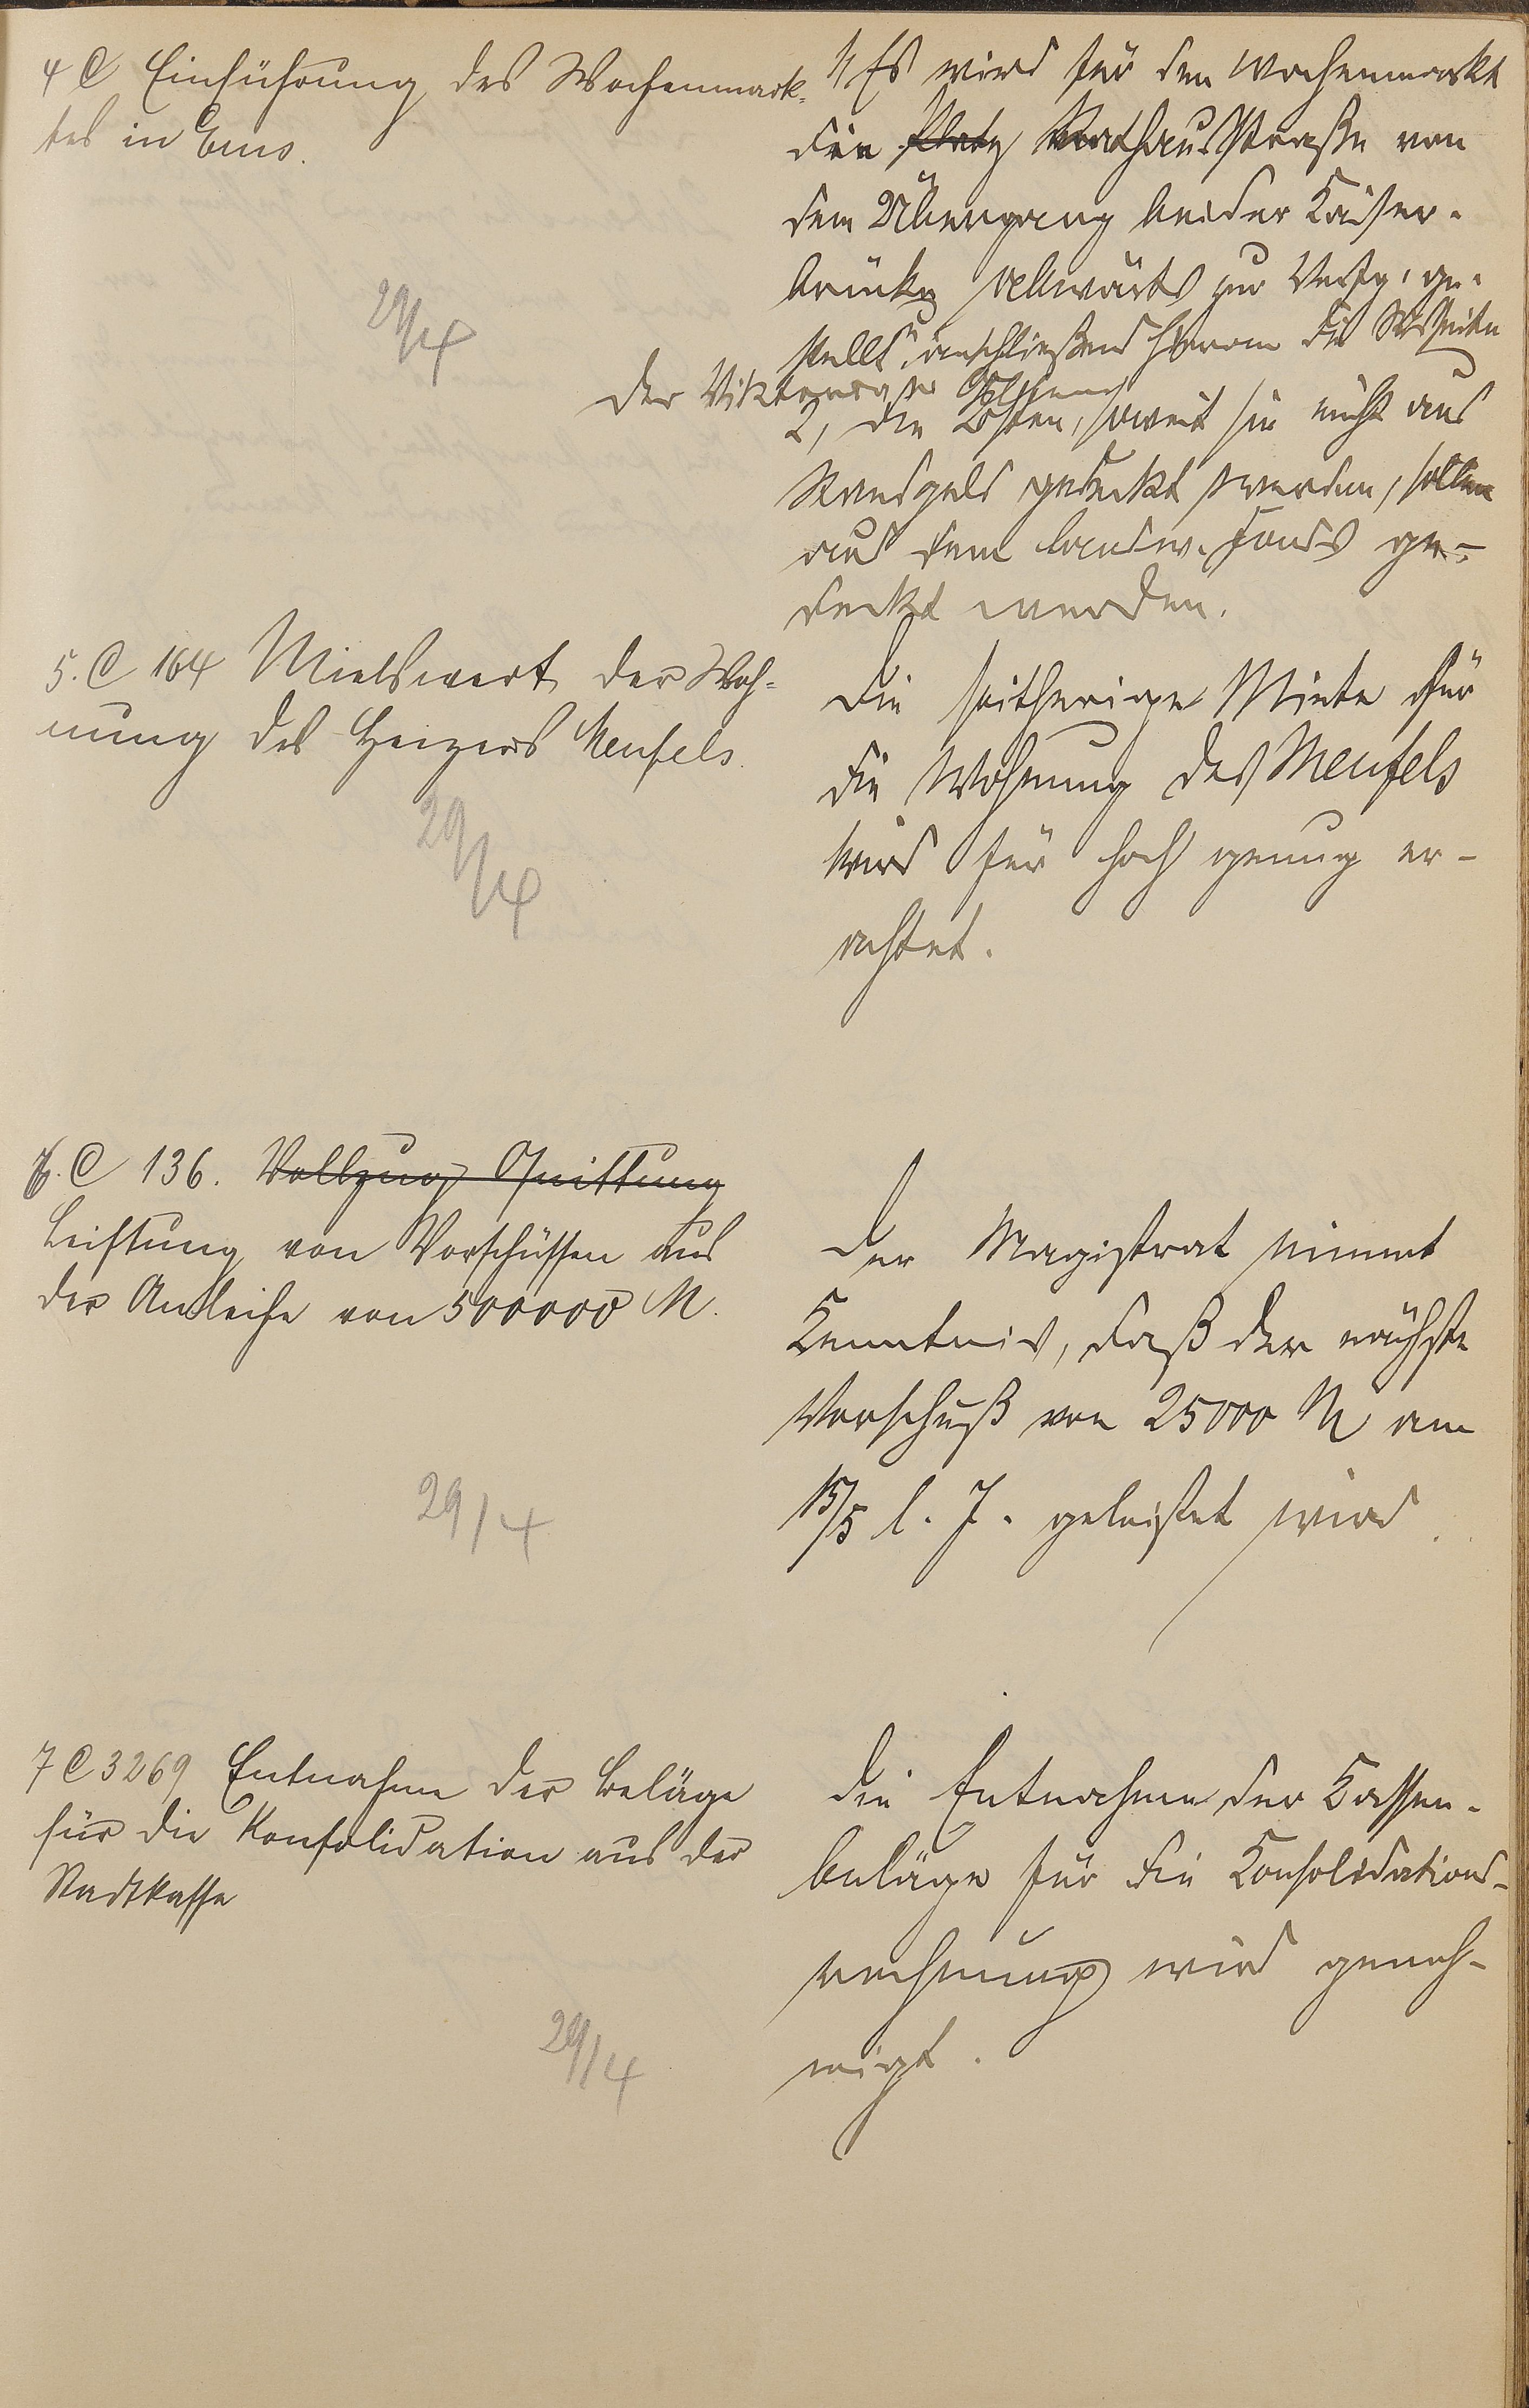 4 C Einführung des Wochenmark-
tes in Ems.
29/4
1, Es wird für den Wochenmarkt
die Platz Rathausstraße von
dem Übergang bei der Kaiser-
brücke abwärts zur Verfg. ge-
stellt, anschließend hieran die
der Viktoria
2, Die Kosten, soweit sie nicht aus
Standgeld gedeckt werden, sollen
aus dem landw. Fonds ge-
deckt werden.
5. C 164 Mietswert der Woh-
nung des Heizers Menfels.
29/4
Die seitherige Miete für
die Wohnung des Menfels
wird für hoch genug er-
achtet.
6. C 136. Vollzug Quittung
Leistung von Vorschüssen aus
der Anleihe von 500000 M.
29/4
Der Magistrat nimmt
Kenntnis, daß der nächste
Vorschuß von 25000 M am
15/5 l. J. geleistet wird.
7 C 3269 Entnahme der Beläge
für die Konsolidation aus der
Stadtkasse
29/4
Die Entnahme der Kassen-
beläge für die Konsolidations-
rechnung wird geneh-
migt.